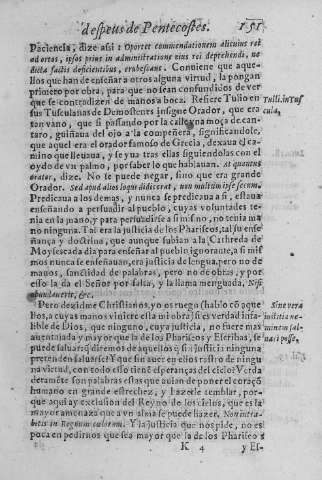 despues de Pentecostes. 151
Paciencia, dize assi: Oportet commendationem alicuius rei
ad artos, ipsos prius in administratione eius rei deprehendi, ne
dicta factis deficientibus, erubescant. Conuiene que aque-
llos que han de enseñar a otros alguna virtud, la pongan
primero por obra, para que no sean confundidos de ver
que se contradizen de manos a boca. Refiere Tulio en
sus Tusculanas de Demostenes insigne Orador, que era
tan vano, que si passando por la calle vna moça de can-
taro, guiñaua del ojo a la compañera, significandole,
que aquel era el orador famoso de Grecia, dexaua el ca-
mino que lleuaua, y se yua tras ellas siguiendolas con el
oydo de vn palmo, por saber lo que hablauan. At quantus
orator, dize. No se puede negar, sino que era grande
Orador. Sed apud alios loqui didicerat, non multum ipse secum.
Predicaua a los demas, y nunca se predicaua a si, estaua
enseñando a persuadir al pueblo, cuyas voluntades te-
nia en la mano, y para persuadirse a si mismo, no tenia ma
no ninguna. Tal era la justicia de los Phariseos, tal su ense
ñança y doctrina, que aunque subian a la Cathreda de
Moyses cada dia para enseñar al pueblo ignorante, a si mis
mos nunca se enseñauan, era justicia de lengua, pero no de
manos, santidad de palabras, pero no de obras, y por
esso la da el Señor por falta, y la llama menguada, Nisi
abundauerit, &c.
Pero dezidme Christianos, y os ruego (hablo cõ aque
llos, a cuyas manos viniere esta mi obra) si es verdad infa-
lible de Dios, que ninguno, cuya justicia, no fuere mas
auentajada y mayor que la de los Phariseos y Escribas, se
puede saluar: q diremos de aquellos q sin justicia ninguna
pretenden saluarse? Y que sin auer en ellos rastro de ningu
na virtud, con todo esso tiene esperanças del cielo? Verda
deramẽte son palabras estas que auian de poner el coraçõ
humano en grande estrechez, y hazerle temblar, por-
que aqui ay exclusion del Reyno de los cielos, que es la
mayor amenaza que a vn alma se puede hazer. Non intra-
bitis in Regnum cælorum. Y la justicia que nos pide, no es
poca en pedirnos que sea mayor que la de los Phariseos
K 4 y Es-
Tulli. in Tus
cula.
Sine vera
iustitia ne-
mintem sal-
uari posse.